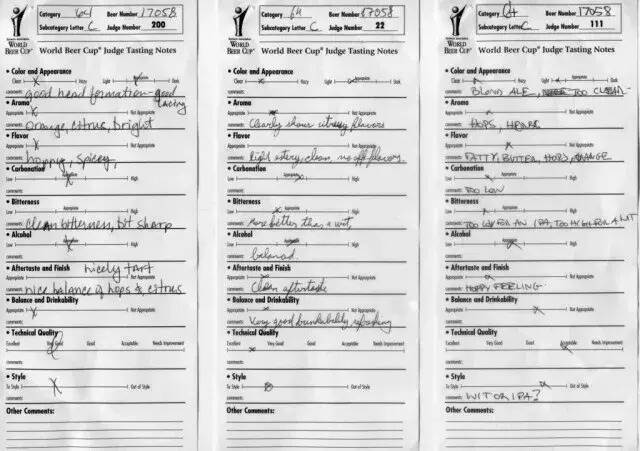 Category 64 Beer Number 17058
Subcategory Letter C Judge Number 200
WORLD BEER CUP
World Beer Cup® Judge Tasting Notes
• Color and Appearance
Clear Hazy Light Appropriate Dark
comments: good head formation - good lacing
• Aroma
Appropriate Not Appropriate
comments: orange, citrus, bright
• Flavor
Appropriate Not Appropriate
comments: hoppy, spicey,
• Carbonation
Low Appropriate High
comments:
• Bitterness
Low Appropriate High
comments: clean bitterness, bit sharp
• Alcohol
Low Appropriate High
comments:
• Aftertaste and Finish nicely tart
Appropriate Not Appropriate
comments: nice balance of hops & citrus
• Balance and Drinkability
Appropriate Not Appropriate
comments:
• Technical Quality
Excellent Very Good Good Acceptable Needs Improvement
comments:
• Style
To Style Out of Style
comments:
Other Comments:
Category 64 Beer Number 17058
Subcategory Letter C Judge Number 22
WORLD BEER CUP
World Beer Cup® Judge Tasting Notes
• Color and Appearance
Clear Hazy Light Appropriate Dark
comments:
• Aroma
Appropriate Not Appropriate
comments: Clearly shows citrusy flavors
• Flavor
Appropriate Not Appropriate
comments: clean, no off-flavors
• Carbonation
Low Appropriate High
comments:
• Bitterness
Low Appropriate High
comments: More bitter than a wit,
• Alcohol
Low Appropriate High
comments: balanced.
• Aftertaste and Finish
Appropriate Not Appropriate
comments: Clean aftertaste
• Balance and Drinkability
Appropriate Not Appropriate
comments: Very good drinkability, refreshing
• Technical Quality
Excellent Very Good Good Acceptable Needs Improvement
comments:
• Style
To Style Out of Style
comments:
Other Comments:
Category 64 Beer Number 17058
Subcategory Letter C Judge Number 111
WORLD BEER CUP
World Beer Cup® Judge Tasting Notes
• Color and Appearance
Clear Hazy Light Appropriate Dark
comments: BLOND ALE, TOO CLEAR
• Aroma
Appropriate Not Appropriate
comments: HOPS,
• Flavor
Appropriate Not Appropriate
comments: FATTY, BUTTER, HOPS, ORANGE
• Carbonation
Low Appropriate High
comments: TOO LOW
• Bitterness
Low Appropriate High
comments: TOO LOW FOR AN IPA, TOO HIGH FOR A WIT
• Alcohol
Low Appropriate High
comments:
• Aftertaste and Finish
Appropriate Not Appropriate
comments: HOPPY FEELING
• Balance and Drinkability
Appropriate Not Appropriate
comments:
• Technical Quality
Excellent Very Good Good Acceptable Needs Improvement
comments:
• Style
To Style Out of Style
comments: WIT OR IPA?
Other Comments: